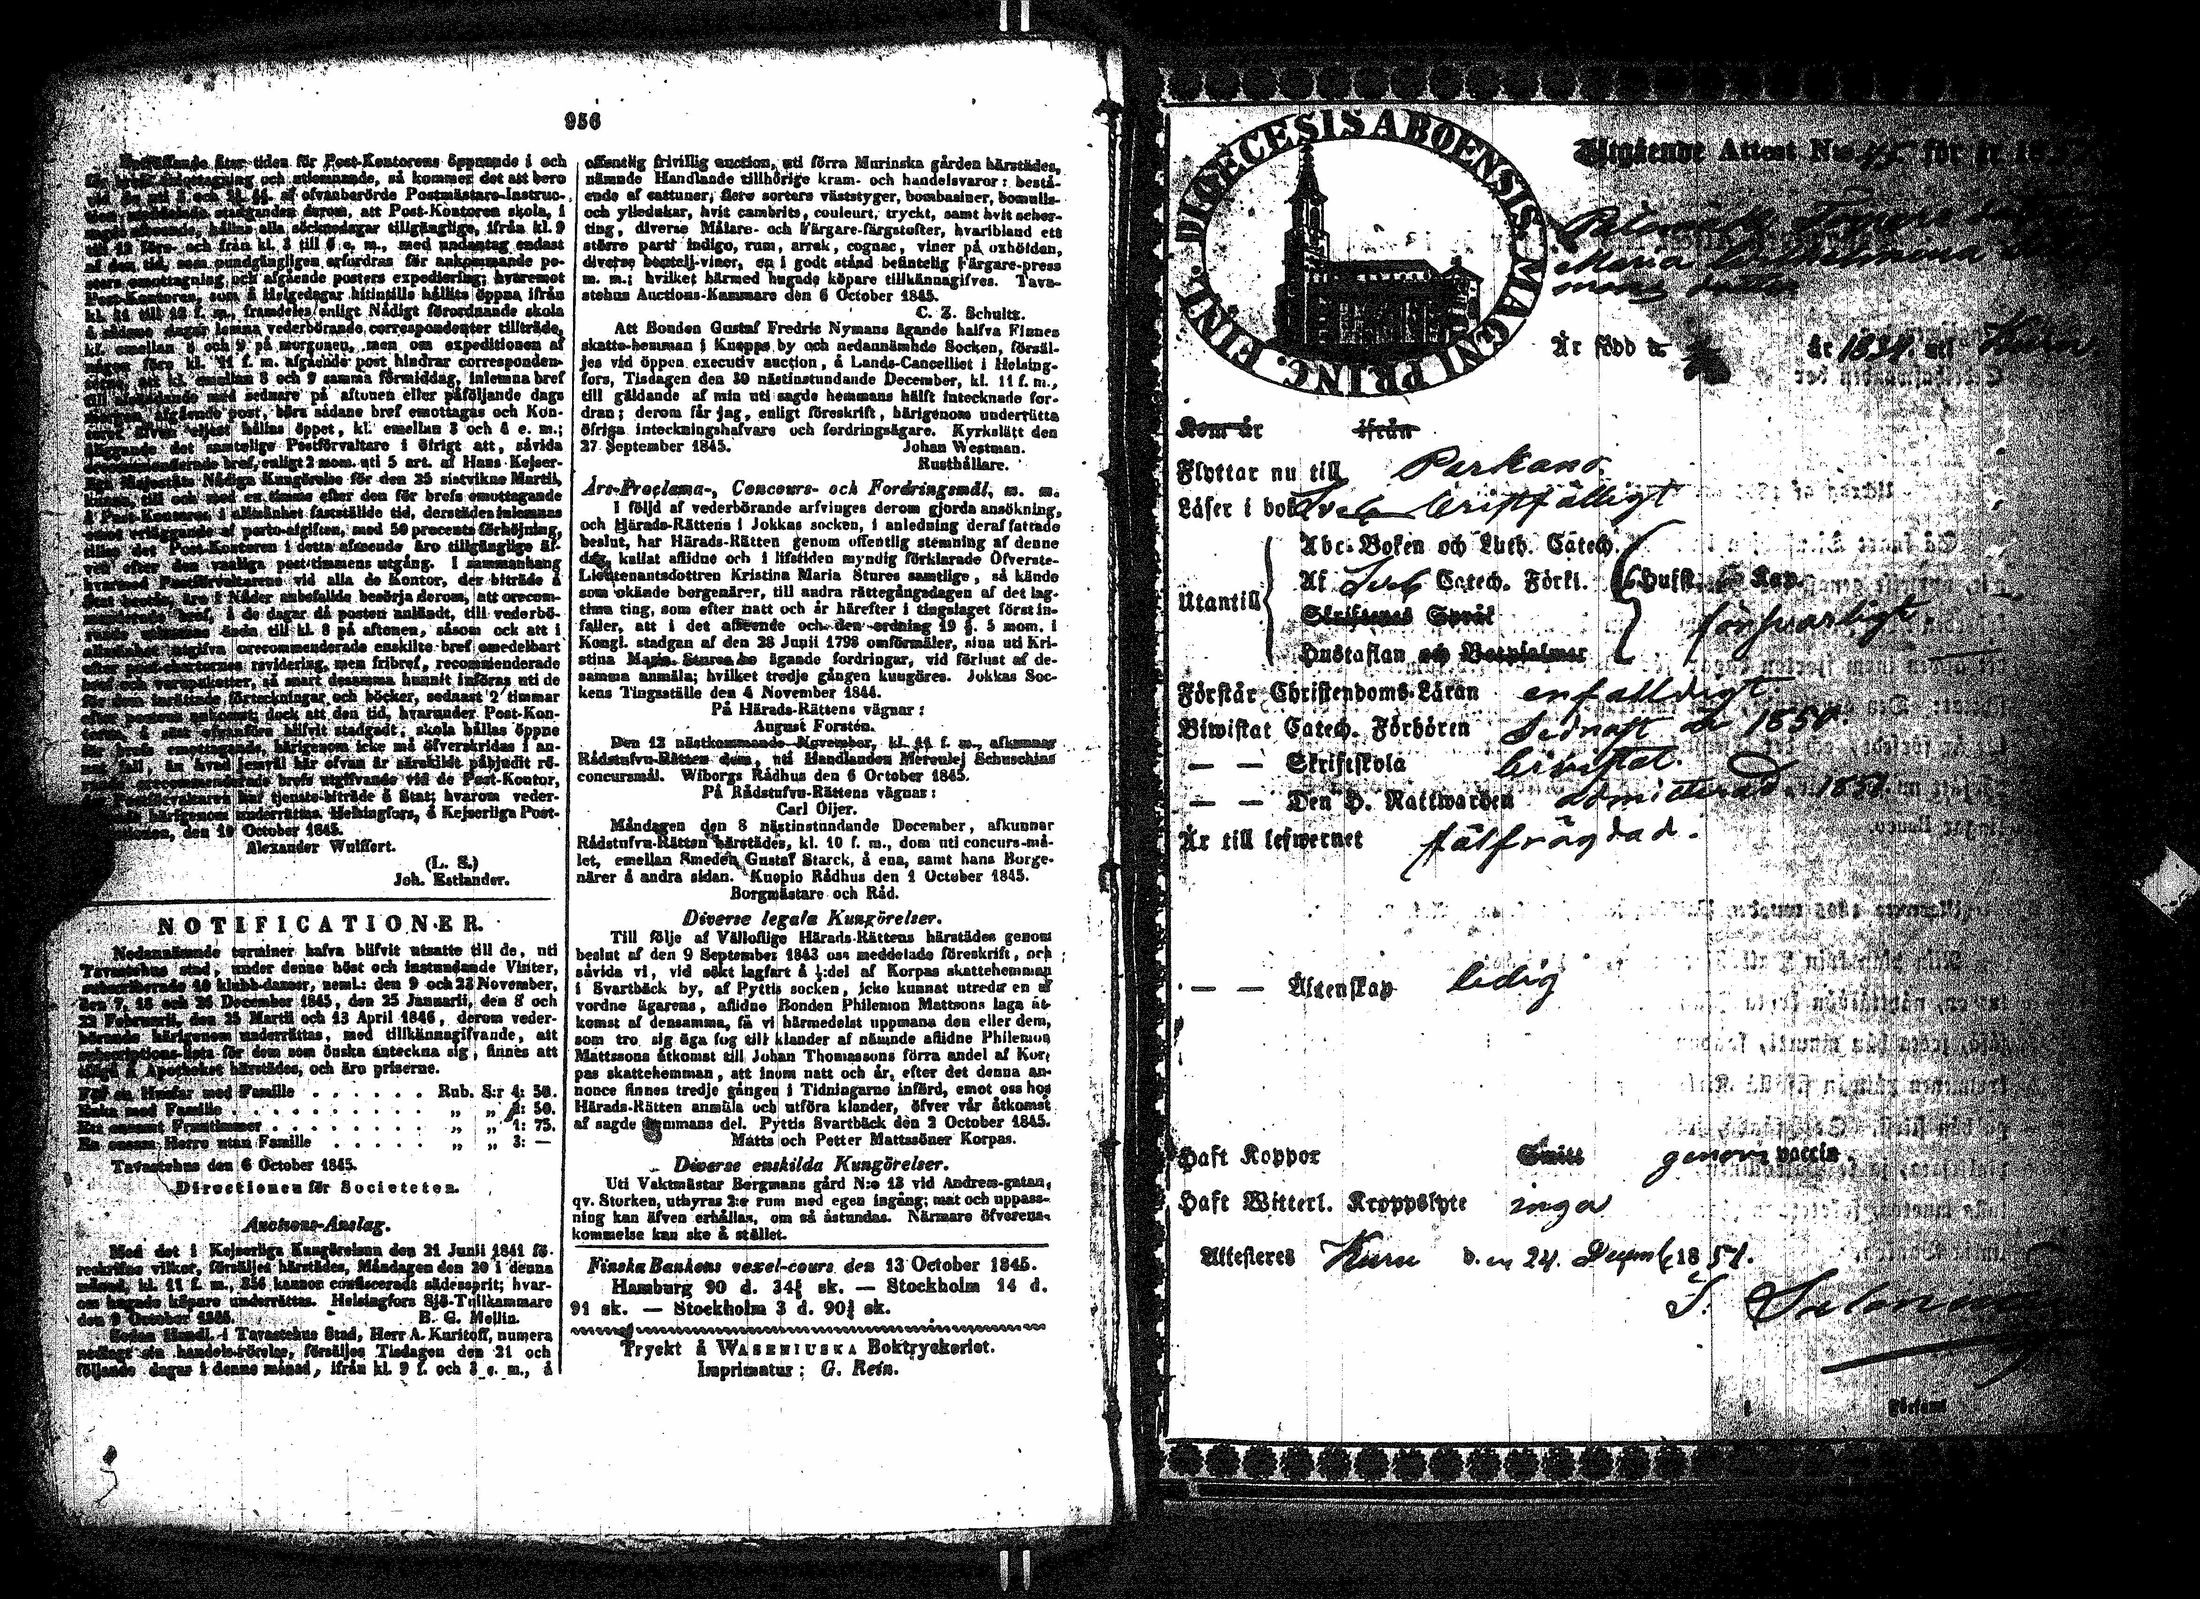 956
tiden för Post-Kontorens öppnande i och
för brefs emottagning och utlemnande, så kommer det att bero
af ofvanberörde Postmästare-Instruc-
derom, att Post-Kontoren skola, i
hållas alla söcknedagar tillgänglige, ifrån kl. 9
till 12 före- och från kl. 3 till 6 e. m., med undantag endast
af den tid, som oundgängligen erfordras för ankommande po-
sters emottagning och afgående posters expediering; hvaremot
Post-Kontoren, som å Helgedagar hitintills hållits öppna ifrån
kl. 11 till 12 f. m., framdeles enligt Nådigt förordnande skola
å sådane dagar lemna vederbörande correspondenter tillträde,
kl. emellan 8 och 9 på morgonen, men om expeditionen af
någon före kl. 11 f. m. afgående post hindrar corresponden-
kl. emellan 8 och 9 samma förmiddag, inlemna bref
till afsändande med sednare på aftonen eller påföljande dags
morgon afgående post, böra sådane bref emottagas och Kon-
toret hållas öppet, kl. emellan 3 och 4 e. m.;
åliggande det samtelige Postförvaltare i öfrigt att, såvida
orecommenderade bref, enligt 2 mom. uti 5 art. af Hans Kejser-
liga Majestäts Nådiga Kungörelse för den 25 sistvikne Martii,
kunna, till och med en timme efter den för brefs emottagande
å Post-Kontoren i allmänhet fastställde tid, derstädes inlemnas
emot erläggande af porto-afgiften, med 50 procents förhöjning,
tillse det Post-Kontoren i detta afseende äro tillgänglige äf-
ven efter den vanliga posttimmens utgång. I sammanhang
hvarmed Postförvaltarene vid alla de Kontor, der biträde å
Stat består, äro i Nåder anbefallde besörja derom, att orecom-
menderade bref, å de dagar då posten anländt, till vederbö-
rande utlemnas ända till kl. 8 på aftonen, såsom ock att i
allmänhet utgifva orecommenderade enskilte bref omedelbart
efter post-charternes revidering, men fribref, recommenderade
bref och verspaketter, så snart desamma hunnit införas uti de
för dem inrättade förteckningar och böcker, sednast 2 timmar
efter postens ankomst; dock att den tid, hvarunder Post-Kon-
toren, å sätt ofvanföre blifvit stadgadt, skola hållas öppne
för brefs emottagande, härigenom icke må öfverskridas i an-
nat fall, än hvad jemväl här ofvan är särskildt påbjudit rö-
rande orecommenderade brefs utgifvande vid de Post-Kontor,
der Postförvaltarne haf tjenste-biträde å Stat; hvarom veder-
börande härigenom underrättas. Helsingfors, å Kejserliga Post-
Directionen, den 10 October 1845.
Alexander Wulffert.
(L. S.)
Joh. Estlander.
NOTIFICATIONER.
Nedannämnde terminer hafva blifvit utsatte till de, uti
Tavastehus stad, under denne höst och instundande Vinter,
subscriberade 10 klubb-danser, neml.: den 9 och 23 November,
den 7, 18 och 26 December 1845, den 25 Januarii, den 8 och
22 Februarii, den 25 Martii och 13 April 1846, derom veder-
börande härigenom underrättas, med tillkännagifvande, att
subscriptions-lista för dem som önska anteckna sig, finnes att
tillgå å Apotheket härstädes, och äro priserne.
För en Husfar med Familie . . . . . . Rub. S:r 4: 50.
Enka med Familie . . . . . . . . . „ „ 2: 50.
Ett ensamt Fruntimmer . . . . . . . . „ „ 1: 75.
En ensam Herre utan Familie . . . . . „ „ 3: —
Tavastehus den 6 October 1845.
Directionen för Societeten.
Auctions-Anslag.
Med det i Kejserliga Kungörelsen den 21 Junii 1841 fö-
reskrifne vilkor, försäljes härstädes, Måndagen den 20 i denna
månad, kl. 11 f. m., 356 kannor confisceradt sädessprit; hvar-
om hugade köpare underrättas. Helsingfors Sjö-Tullkammare
den 9 October 1845. B. G. Mellin.
Sedan Handl. i Tavastehus Stad, Herr A. Kuritoff, numera
nedlagt sin handels-rörelse, försäljes Tisdagen den 21 och
följande dagar i denne månad, ifrån kl. 9 f. och 3 e. m., å
offentlig frivillig auction, uti förra Murinska gården härstädes,
nämnde Handlande tillhörige kram- och handelsvaror: bestå-
ende af cattuner, flere sorters väststyger, bombasiner, bomulls-
och ylledukar, hvit cambrits, couleurt, tryckt, samt hvit scher-
ting, diverse Målare- och Färgare-färgstofter, hvaribland ett
större parti indigo, rum, arrak, cognac, viner på oxhöfdan,
diverse boutelj-viner, en i godt stånd befintelig Färgare-press
m. m.; hvilket härmed hugade köpare tillkännagifves. Tava-
stehus Auctions-Kammare den 6 October 1845.
C. Z. Schultz.
Att Bonden Gustaf Fredric Nymans ägande halfva Finnes
skatte-hemman i Knopps by och nedannämnde Socken, försäl-
jes vid öppen executiv auction, å Lands-Cancelliet i Helsing-
fors, Tisdagen den 30 nästinstundande December, kl. 11 f. m.,
till gäldande af min uti sagde hemmans hälft intecknade for-
dran; derom får jag, enligt föreskrift, härigenom underrätta
öfriga inteckningshafvare och fordringsägare. Kyrkslätt den
27 September 1845. Johan Westman.
Rusthållare.
Års-Proclama-, Concours- och Fordringsmål, m. m.
I följd af vederbörande arfvinges derom gjorda ansökning,
och Härads-Rättens i Jokkas socken, i anledning deraf fattade
beslut, har Härads-Rätten genom offentlig stemning af denne
dag, kallat aflidne och i lifstiden myndig förklarade Öfverste-
Lieutenantsdottren Kristina Maria Stures samtlige, så kände
som okände borgenärer, till andra rättegångsdagen af det lag-
tima ting, som efter natt och år härefter i tingslaget först in-
faller, att i det afseende och den ordning 19 §. 5 mom. i
Kongl. stadgan af den 28 Junii 1798 omförmäler, sina uti Kri-
stina Maria Stures bo ägande fordringar, vid förlust af de-
samma anmäla; hvilket tredje gången kungöres. Jokkas Soc-
kens Tingsställe den 4 November 1844.
På Härads-Rättens vägnar:
August Forstén.
Den 12 nästkommande November, kl. 11 f. m., afkunnar
Rådstufvu-Rätten dom, uti Handlanden Merculej Schuschins
concursmål. Wiborgs Rådhus den 6 October 1845.
På Rådstufvu-Rättens vägnar:
Carl Oljer.
Måndagen den 8 nästinstundande December, afkunnar
Rådstufvu-Rätten härstädes, kl. 10 f. m., dom uti concurs-må-
let, emellan Smeden Gustaf Starck, å ena, samt hans Borge-
närer å andra sidan. Kuopio Rådhus den 1 October 1845.
Borgmästare och Råd.
Diverse legala Kungörelser.
Till följe af Välloflige Härads-Rättens härstädes genom
beslut af den 9 September 1843 oss meddelade föreskrift, och
såvida vi, vid sökt lagfart å ½:del af Korpas skattehemman
i Svartbäck by, af Pyttis socken, icke kunnat utreda en af
vordne ägarens, aflidne Bonden Philemon Mattsons laga åt-
komst af densamma, få vi härmedelst uppmana den eller dem,
som tro sig äga fog till klander af nämnde aflidne Philemon
Mattssons åtkomst till Johan Thomassons förra andel af Kor-
pas skattehemman, att inom natt och år, efter det denna an-
nonce finnes tredje gången i Tidningarne införd, emot oss hos
Härads-Rätten anmäla och utföra klander, öfver vår åtkomst
af sagde hemmans del. Pyttis Svartbäck den 2 October 1845.
Matts och Petter Mattssöner Korpas.
Diverse enskilda Kungörelser.
Uti Vaktmästar Bergmans gård N:o 13 vid Andrem-gatan,
qv. Storken, uthyras 2:e rum med egen ingång; mat och uppass-
ning kan äfven erhållas, om så åstundas. Närmare öfverens-
kommelse kan ske å stället.
Finska Bankens vexel-cours den 13 October 1845.
Hamburg 90 d. 34¾ sk. — Stockholm 14 d.
91 sk. — Stockholm 3 d. 90¾ sk.
Tryckt å WASENIUSKA Boktryckeriet.
Imprimatur: G. Rein.
DIOECESIS ABOENSIS MAGNI PRINC. FINL.
Utgående Attest N:o 45. för år 18
Maria Wilhelmina
Är född d. år 1834. uti Kuru
Kom år ifrån
Flyttar nu till Parkano
Läser i bok Svebelii Christfälligt
Abc-Boken och Luth. Catech.
Utantill Af Sveb Catech. Förkl. Hufst. Kap.
Skriftenes Språk försvarligt
Hustaflan och Botpsalmer
Förstår Christendoms-Läran enfalldigt.
Biwistat Catech. Förhören Sednast år 1850.
— — Skriftskola bivistat.
— — Den H. Nattwarden admitterad, 1851.
Är till lefwernet fälfrägdad.
— — Äktenskap ledig
Haft Koppor Smitt genom vaccin.
Haft Witterl. Kroppslyte inga
Attesteres Kuru d. en 24. Decemb. 1851.